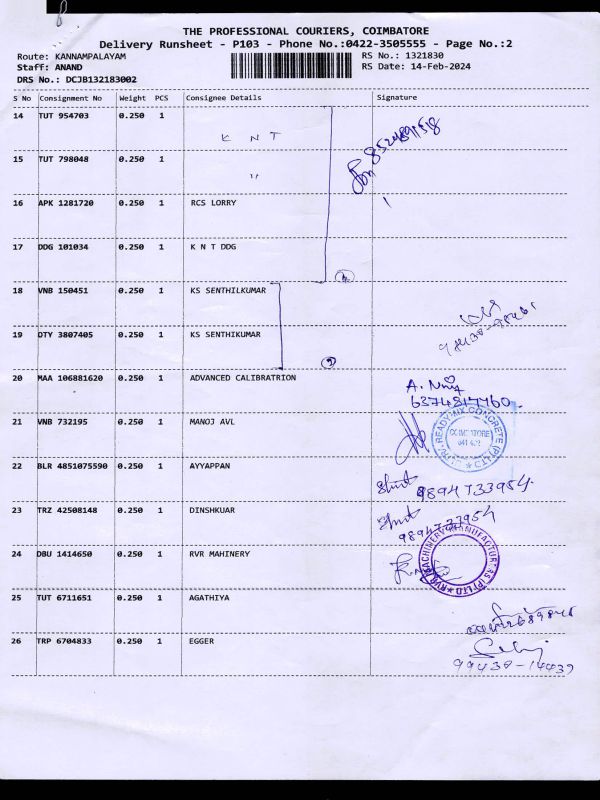 THE PROFESSIONAL COURIERS, COIMBATORE
Delivery Runsheet - P103 - Phone No.:0422-3505555 - Page No.:2
Route: KANNAMPALAYAM
RS No.: 1321830
Staff: ANAND
RS Date: 14-Feb-2024
DRS No.: DCJB132183002
S No Consignment No Weight PCS Consignee Details Signature
14 TUT 954703 0.250 1 K N T
15 TUT 798048 0.250 1 "
16 APK 1281720 0.250 1 RCS LORRY
17 DDG 101034 0.250 1 K N T DDG
18 VNB 150451 0.250 1 KS SENTHILKUMAR
19 DTY 3807405 0.250 1 KS SENTHIKUMAR
20 MAA 106881620 0.250 1 ADVANCED CALIBRATRION
6374817760
21 VNB 732195 0.250 1 MANOJ AVL
READY-MIX CONCRETE (P) LTD
22 BLR 4851075590 0.250 1 AYYAPPAN
9894733954
23 TRZ 42508148 0.250 1 DINSHKUAR
9894733954
24 DBU 1414650 0.250 1 RVR MAHINERY
25 TUT 6711651 0.250 1 AGATHIYA
26 TRP 6704833 0.250 1 EGGER
99438-14439